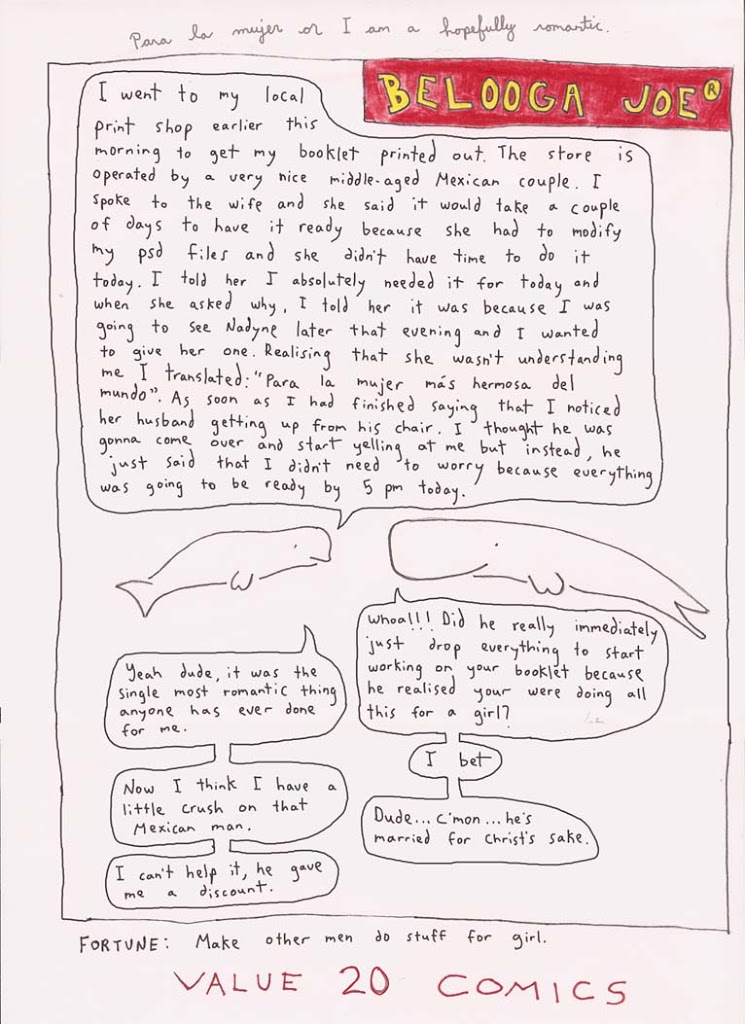 Para la mujer or I am a hopefully romantic.
BELOOGA JOE®
I went to my local
print shop earlier this
morning to get my booklet printed out. The store is
operated by a very nice middle-aged Mexican couple. I
spoke to the wife and she said it would take a couple
of days to have it ready because she had to modify
my psd files and she didn't have time to do it
today. I told her I absolutely needed it for today and
when she asked why, I told her it was because I was
going to see Nadyne later that evening and I wanted
to give her one. Realising that she wasn't understanding
me I translated: "Para la mujer más hermosa del
mundo". As soon as I had finished saying that I noticed
her husband getting up from his chair. I thought he was
gonna come over and start yelling at me but instead, he
just said that I didn't need to worry because everything
was going to be ready by 5 pm today.
Whoa!!! Did he really immediately
just drop everything to start
working on your booklet because
he realised your were doing all
this for a girl?
Yeah dude, it was the
single most romantic thing
anyone has ever done
for me.
I bet
Now I think I have a
little crush on that
Mexican man.
Dude... c'mon... he's
married for Christ's sake.
I can't help it, he gave
me a discount.
FORTUNE: Make other men do stuff for girl.
VALUE 20 COMICS